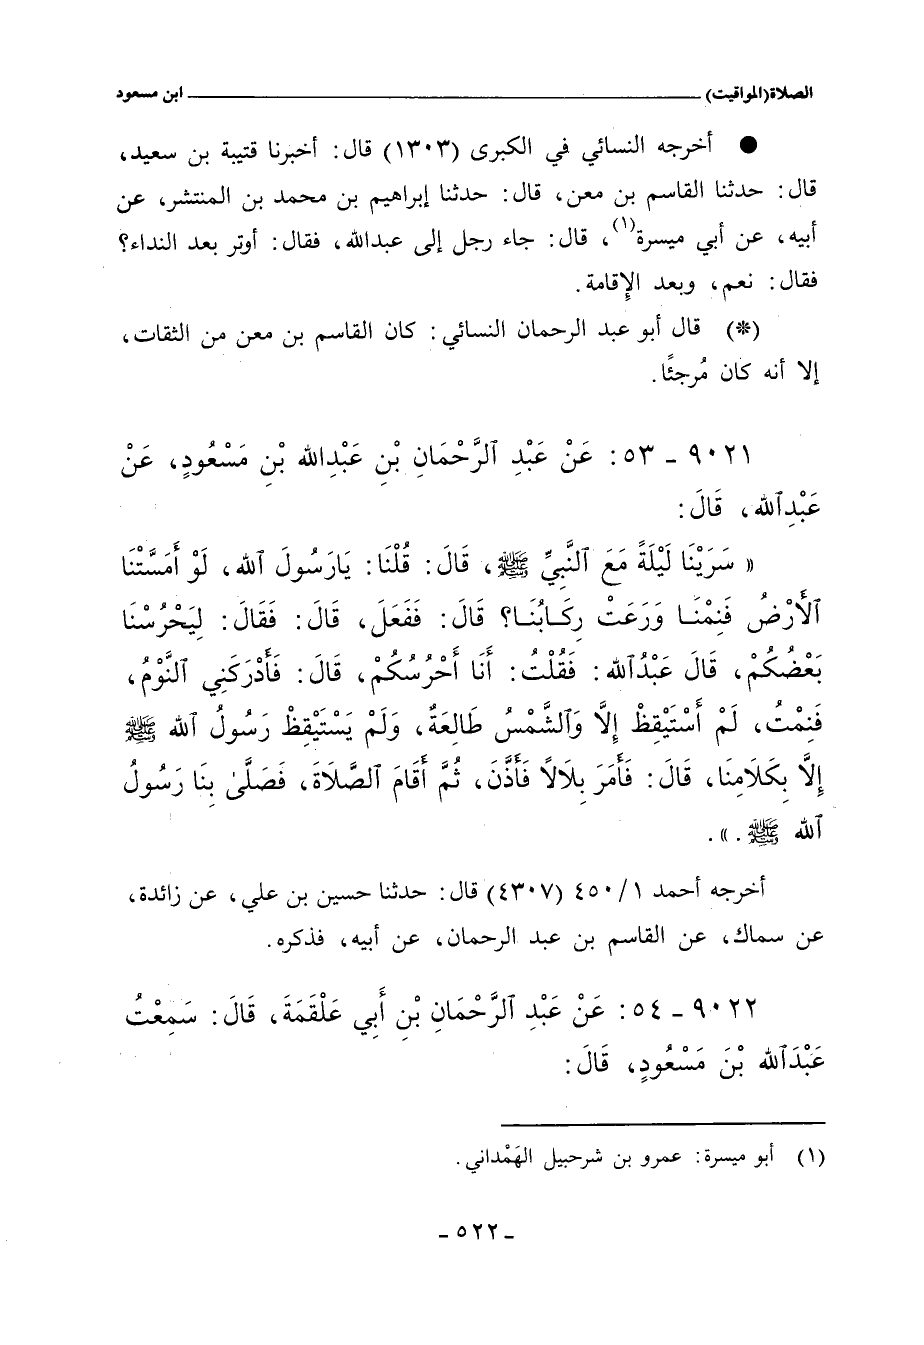 الصلاة(المواقيت) ــــــــــــــــــــــــــــــــــــــــ ابن مسعود
● أخرجه النسائي في الكبرى (١٣٠٣) قال: أخبرنا قتيبة بن سعيد،
قال: حدثنا القاسم بن معن، قال: حدثنا إبراهيم بن محمد بن المنتشر، عن
أبيه، عن أبي ميسرة(١)، قال: جاء رجل إلى عبدالله، فقال: أوتر بعد النداء؟
فقال: نعم، وبعد الإِقامة.
(*) قال أبو عبد الرحمان النسائي: كان القاسم بن معن من الثقات،
إلا أنه كان مُرجئًا.
٩٠٢١ - ٥٣: عَنْ عَبْدِ ٱلرَّحْمَانِ بْنِ عَبْدِالله بْنِ مَسْعُودٍ، عَنْ
عَبْدِٱلله، قَالَ:
« سَرَيْنَا لَيْلَةً مَعَ ٱلنَّبِيِّ ﷺ، قَالَ: قُلْنَا: يَارَسُولَ ٱلله، لَوْ أَمَسَّتْنَا
ٱلأَرْضُ فَنِمْنَـا وَرَعَتْ رِكَـابُنَـا؟ قَالَ: فَفَعَلَ، قَالَ: فَقَالَ: لِيَحْرُسْنَا
بَعْضُكُمْ، قَالَ عَبْدُالله: فَقُلْتُ: أَنَا أَحْرُسُكُمْ، قَالَ: فَأَدْرَكَنِي ٱلنَّوْمُ،
فَنِمْتُ، لَمْ أَسْتَيْقِظْ إِلَّا وَٱلشَّمْسُ طَالِعَةٌ، وَلَمْ يَسْتَيْقِظْ رَسُولُ ٱلله ﷺ
إِلَّا بِكَلَامِنَا، قَالَ: فَأَمَرَ بِلَالاً فَأَذَّنَ، ثُمَّ أَقَامَ ٱلصَّلَاةَ، فَصَلَّىٰ بِنَا رَسُولُ
ٱلله ﷺ. ».
أخرجه أحمد ٤٥٠/١ (٤٣٠٧) قال: حدثنا حسين بن علي، عن زائدة،
عن سماك، عن القاسم بن عبد الرحمان، عن أبيه، فذكره.
٩٠٢٢ - ٥٤: عَنْ عَبْدِ ٱلرَّحْمَانِ بْنِ أَبِي عَلْقَمَةَ، قَالَ: سَمِعْتُ
عَبْدَٱلله بْنَ مَسْعُودٍ، قَالَ:
(١) أبو ميسرة: عمرو بن شرحبيل الهَمْداني.
- ٥٢٢ -